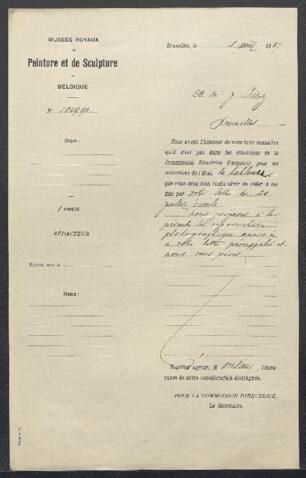 MUSÉES ROYAUX
DE
Peinture et de Sculpture
DE
BELGIQUE
N°
Objet :
ANNEXE
RÉDACTEUR
Expédié sous le
Notes :
Bruxelles, le 1 août 1907
A M. J.
Bruxelles
Nous avons l'honneur de vous faire connaître
qu'il n'est pas dans les intentions de la
Commission Directrice d'acquérir, pour les
collections de l'État, le tableau
que vous avez bien voulu offrir de céder à cet
par votre lettre du
juillet écoulé
Nous joignons à la
présente la reproduction
photographique annexée
à votre lettre et
nous vous
Veuillez agréer, M onsieur, l'assu-
rance de notre considération distinguée.
POUR LA COMMISSION DIRECTRICE,
Le Secrétaire,